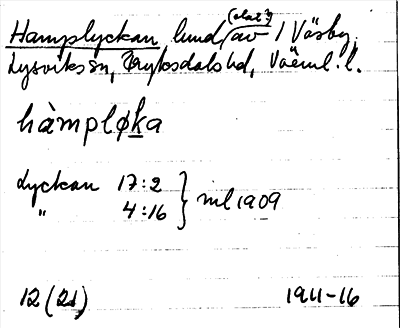 Hamplyckan, lund, (slät?) av / Väsby,
Lysviks sn, Fryksdals hd, Värml. l.
hàmpløka
Lyckan 17:2
" 4:16 } ml 1909
12 (21) 1911-16